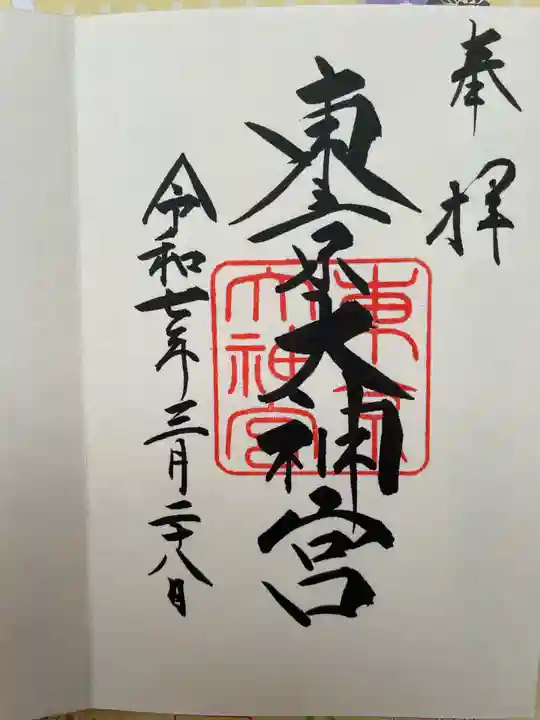 奉拝
東京大神宮
東京
大神宮
令和七年三月二十八日